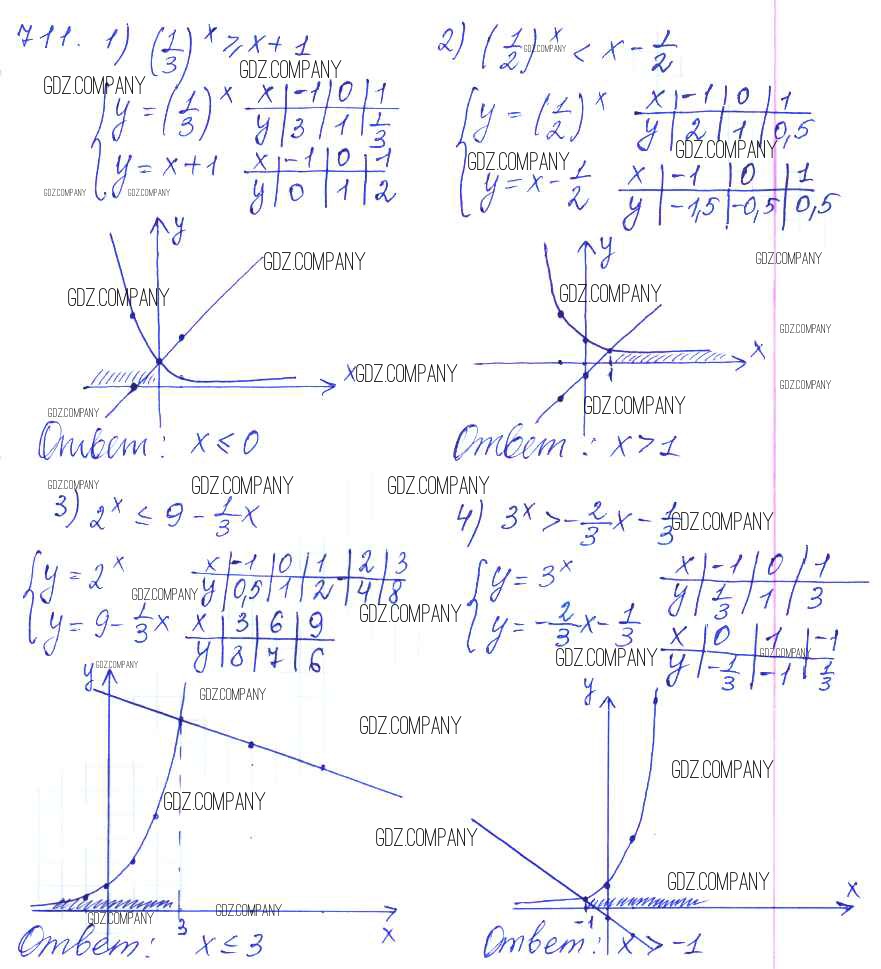 711. 1) (1/3)^x ≥ x + 1
GDZ.COMPANY
GDZ.COMPANY
{ y = (1/3)^x
x | -1 | 0 | 1
y | 3 | 1 | 1/3
y = x + 1
x | -1 | 0 | 1
y | 0 | 1 | 2
GDZ.COMPANY
GDZ.COMPANY
y
GDZ.COMPANY
GDZ.COMPANY
x
GDZ.COMPANY
GDZ.COMPANY
Ответ: x ≤ 0
2) (1/2)^x < x - 1/2
GDZ.COMPANY
{ y = (1/2)^x
x | -1 | 0 | 1
y | 2 | 1 | 0,5
GDZ.COMPANY
GDZ.COMPANY
y = x - 1/2
x | -1 | 0 | 1
y | -1,5 | -0,5 | 0,5
y
GDZ.COMPANY
GDZ.COMPANY
GDZ.COMPANY
x
1
GDZ.COMPANY
GDZ.COMPANY
Ответ: x > 1
GDZ.COMPANY
GDZ.COMPANY
GDZ.COMPANY
3) 2^x ≤ 9 - 1/3 x
{ y = 2^x
x | -1 | 0 | 1 | 2 | 3
y | 0,5 | 1 | 2 | 4 | 8
GDZ.COMPANY
GDZ.COMPANY
y = 9 - 1/3 x
x | 3 | 6 | 9
y | 8 | 7 | 6
y
GDZ.COMPANY
GDZ.COMPANY
GDZ.COMPANY
GDZ.COMPANY
GDZ.COMPANY
GDZ.COMPANY
GDZ.COMPANY
3
x
Ответ: x ≤ 3
4) 3^x > -2/3 x - 1/3
GDZ.COMPANY
{ y = 3^x
x | -1 | 0 | 1
y | 1/3 | 1 | 3
y = -2/3 x - 1/3
x | 0 | 1 | -1
y | -1/3 | -1 | 1/3
GDZ.COMPANY
GDZ.COMPANY
y
GDZ.COMPANY
GDZ.COMPANY
x
-1
Ответ: x > -1